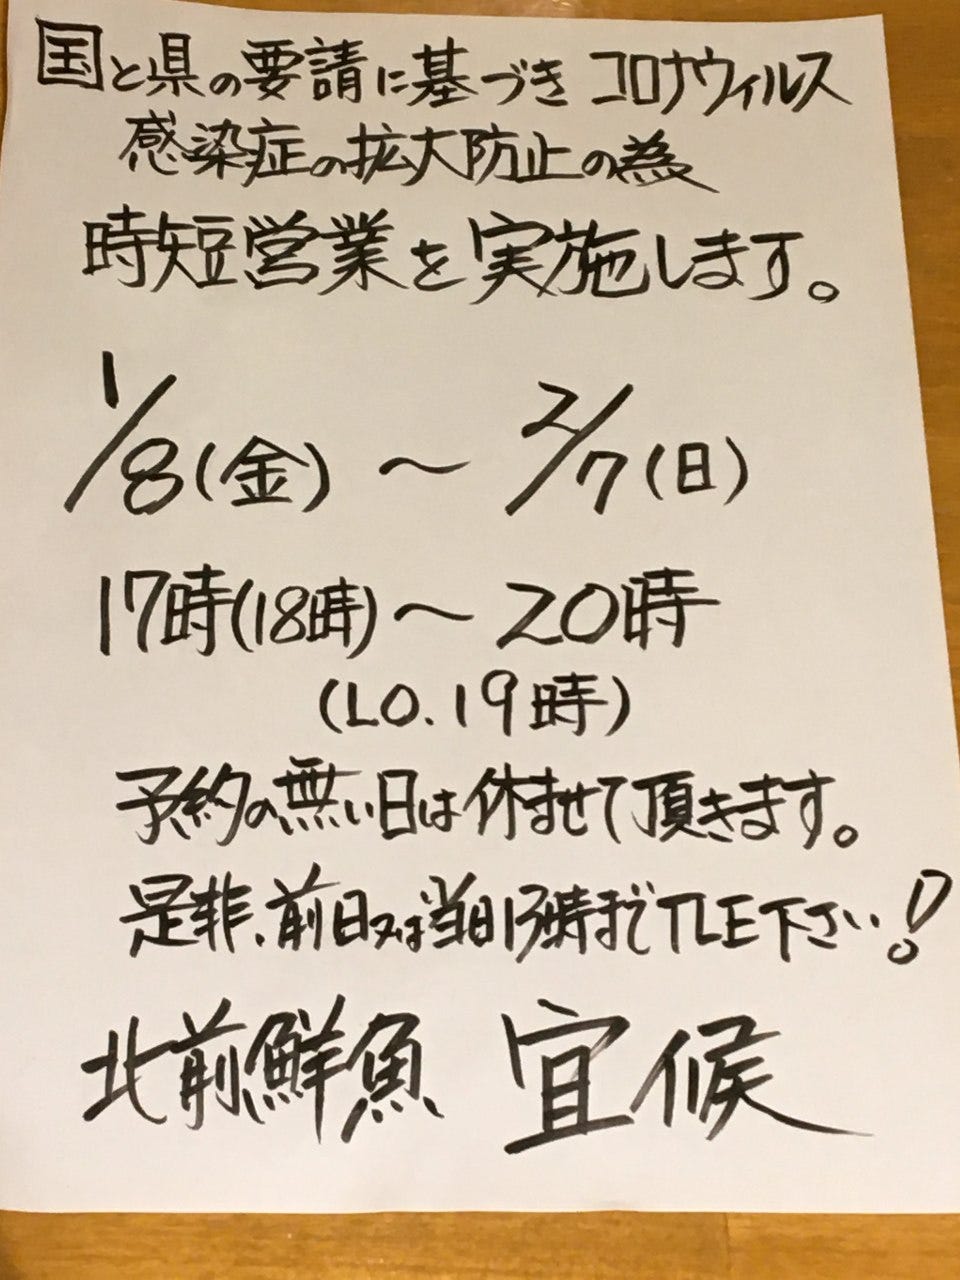 国と県の要請に基づきコロナウィルス
感染症の拡大防止の為
時短営業を実施します。
1/8(金)～2/7(日)
17時(18時)～20時
(LO.19時)
予約の無い日は休ませて頂きます。
是非、前日又は当日15時までTLE下さい!
北前鮮魚 宜候